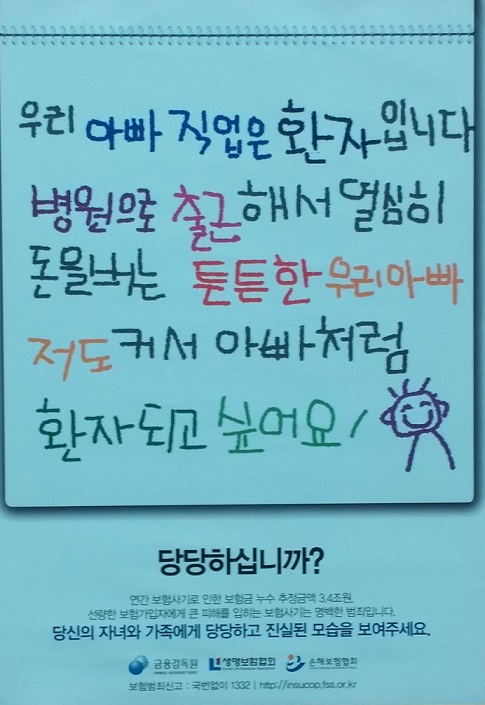 우리 아빠 직업은 환자입니다
병원으로 출근해서 열심히
돈을버는 튼튼한 우리아빠
저도 커서 아빠처럼
환자되고 싶어요!
당당하십니까?
연간 보험사기로 인한 보험금 누수 추정금액 3.4조원.
선량한 보험가입자에게 큰 피해를 입히는 보험사기는 명백한 범죄입니다.
당신의 자녀와 가족에게 당당하고 진실된 모습을 보여주세요.
금융감독원 생명보험협회 손해보험협회
보험범죄신고 : 국번없이 1332 | http://insucop.fss.or.kr